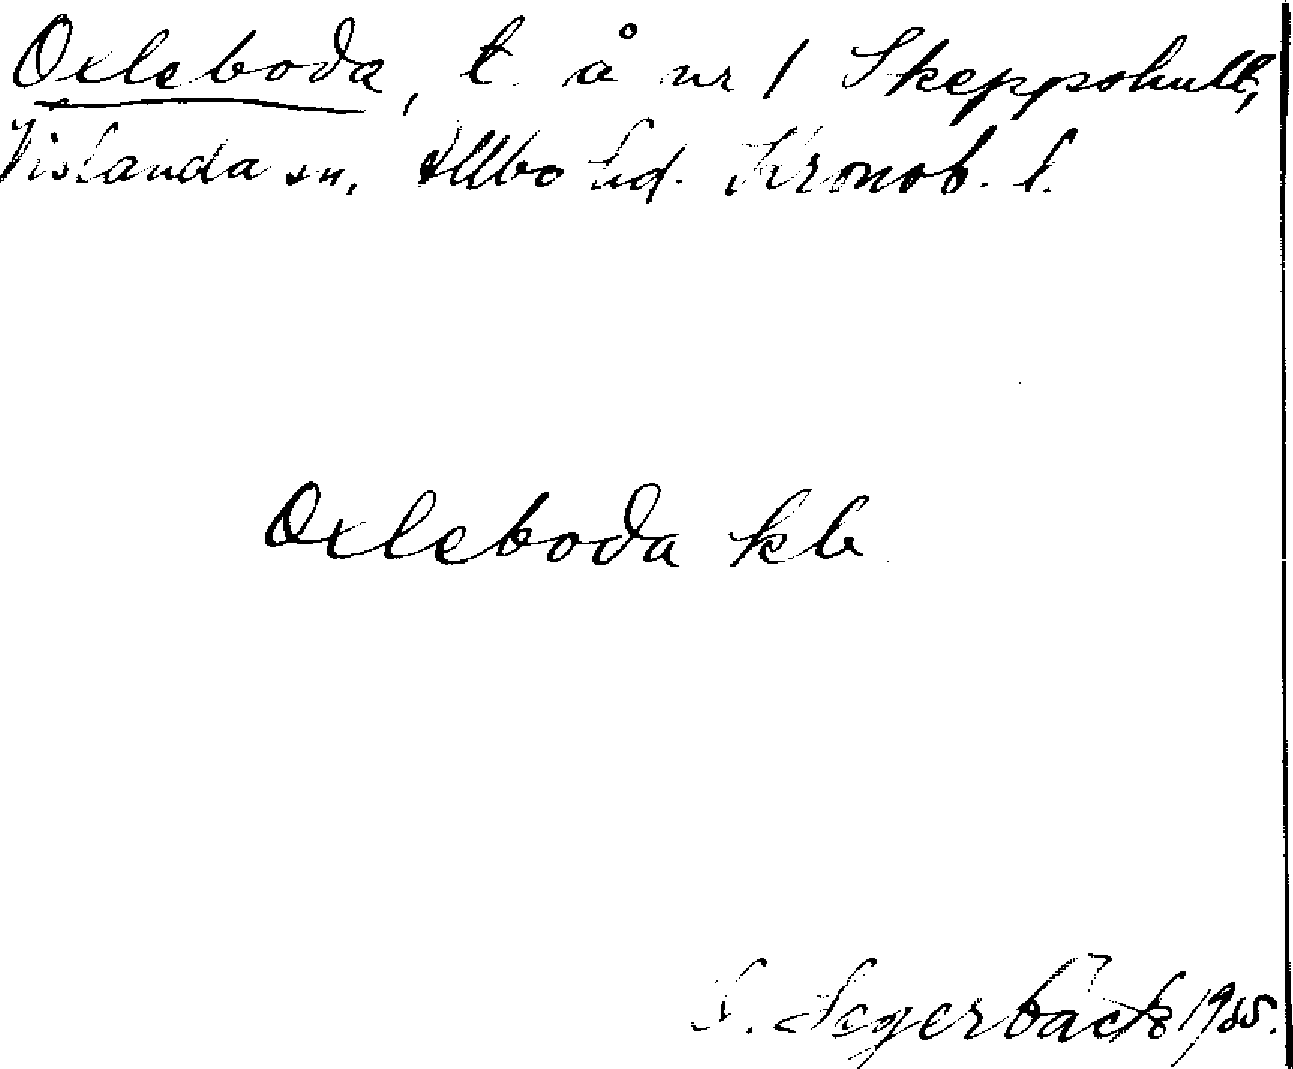 Oxleboda, t. å nr 1 Skeppshult,
Vislanda sn, Allbo hd. Kronob. l.
Oxleboda kb
S. Segerbäck